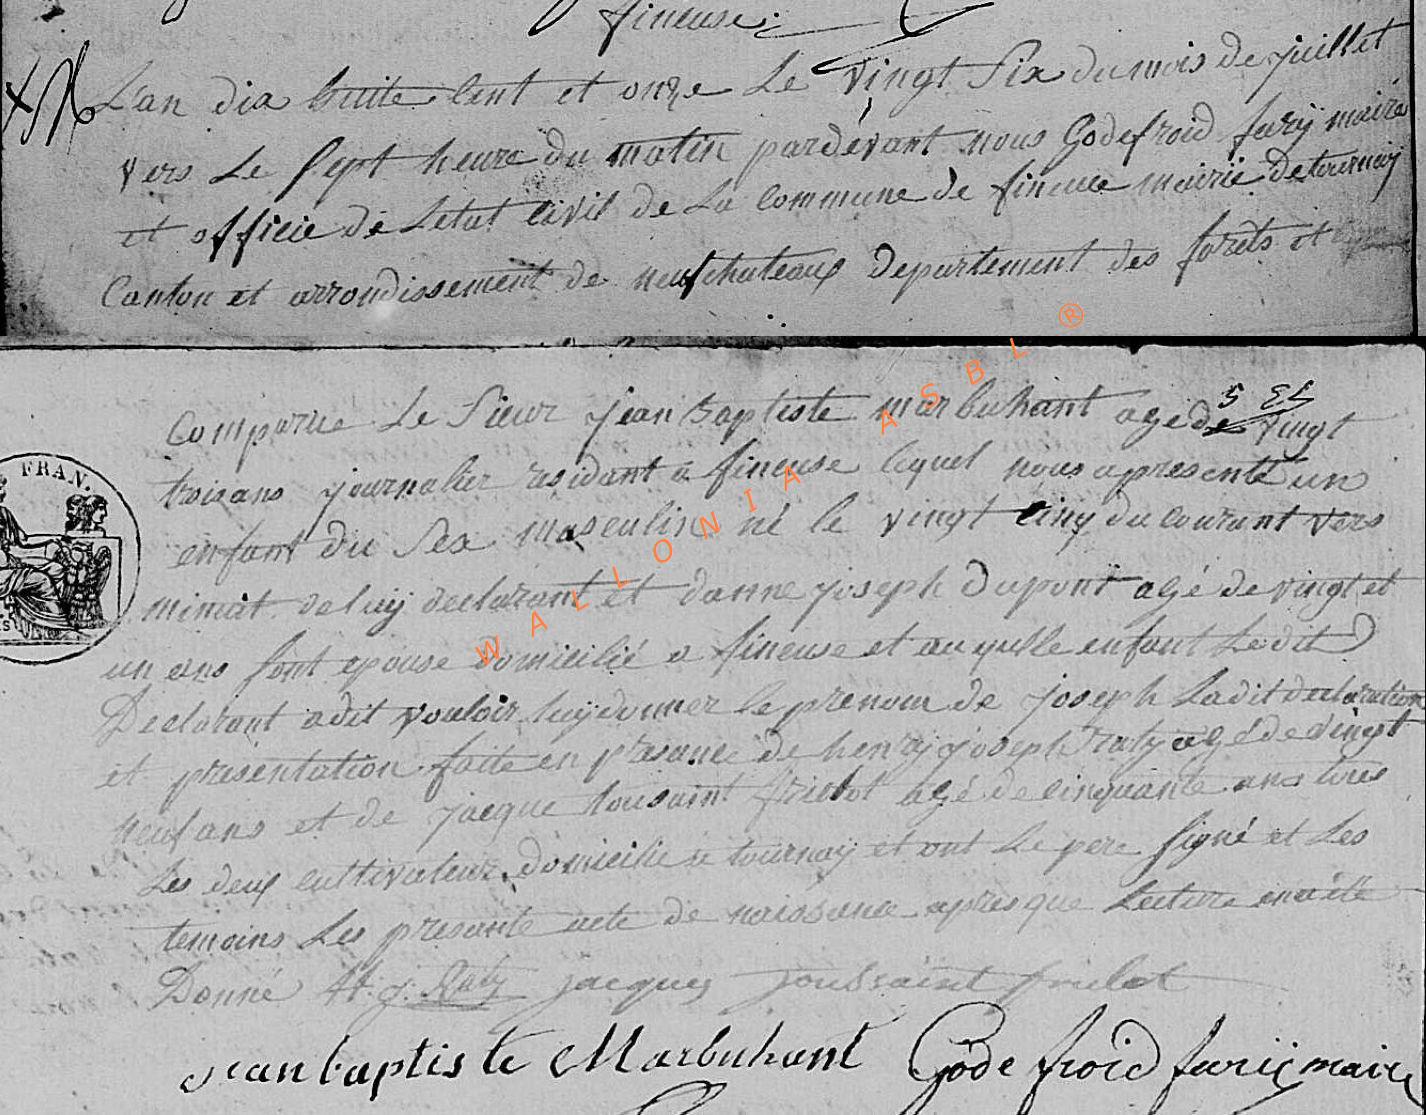 fineuse.
L'an dix huite cent et onze Le vingt Six du mois de juillet
vers Le Sept heure du matin pardévant nous Godefroid furÿ maire
et officie dé Letat Civil de La Commune de fineuse mairie de tournaÿ
Canton et arrondissement de neufchateaux Departement des forèts et
Comparue Le Sieur jean Baptiste marbuhant age de vingt
trois ans journalier residant a fineuse lequel nous a presenté un
enfant du Sex masculin né le vingt cinq du courant vers
minuit de luÿ declarant et danne joseph Dupont agé de vingt et
un ans Sont epouse domicilié a fineuse et auqu'lle enfant Le dit
Declarant a dit vouloir luÿ donner le prenom de joseph La dit declaration
et presentation faite en présance de henrÿ joseph ratz agé de vingt
neuf ans et de jacque tousaint frislot agé de cinquante ans tous
Les deux cultivateur domicilie a tournaÿ et ont Le pere Signé et Les
temoins Les presante acte de naissance apres que Lecture en a été
Donné H. j. Ratz jacques joussaint frislot
Jean baptiste Marbuhant Gode froid furÿ maire
FRAN.
WALLONIA ASBL ®